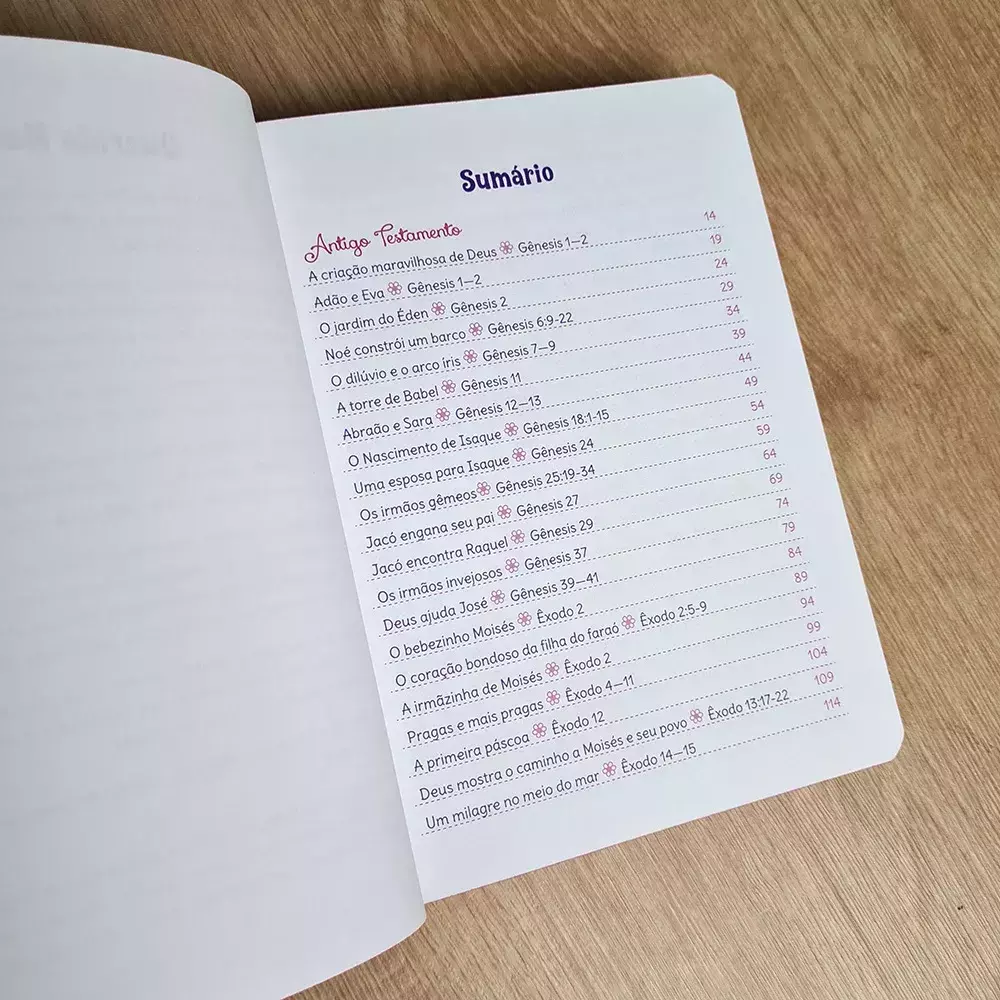 Sumário
Antigo Testamento
A criação maravilhosa de Deus Gênesis 1—2 14
Adão e Eva Gênesis 1—2 19
O jardim do Éden Gênesis 2 24
Noé constrói um barco Gênesis 6:9-22 29
O dilúvio e o arco íris Gênesis 7—9 34
A torre de Babel Gênesis 11 39
Abraão e Sara Gênesis 12—13 44
O Nascimento de Isaque Gênesis 18:1-15 49
Uma esposa para Isaque Gênesis 24 54
Os irmãos gêmeos Gênesis 25:19-34 59
Jacó engana seu pai Gênesis 27 64
Jacó encontra Raquel Gênesis 29 69
Os irmãos invejosos Gênesis 37 74
Deus ajuda José Gênesis 39—41 79
O bebezinho Moisés Êxodo 2 84
O coração bondoso da filha do faraó Êxodo 2:5-9 89
A irmãzinha de Moisés Êxodo 2 94
Pragas e mais pragas Êxodo 4—11 99
A primeira páscoa Êxodo 12 104
Deus mostra o caminho a Moisés e seu povo Êxodo 13:17-22 109
Um milagre no meio do mar Êxodo 14—15 114